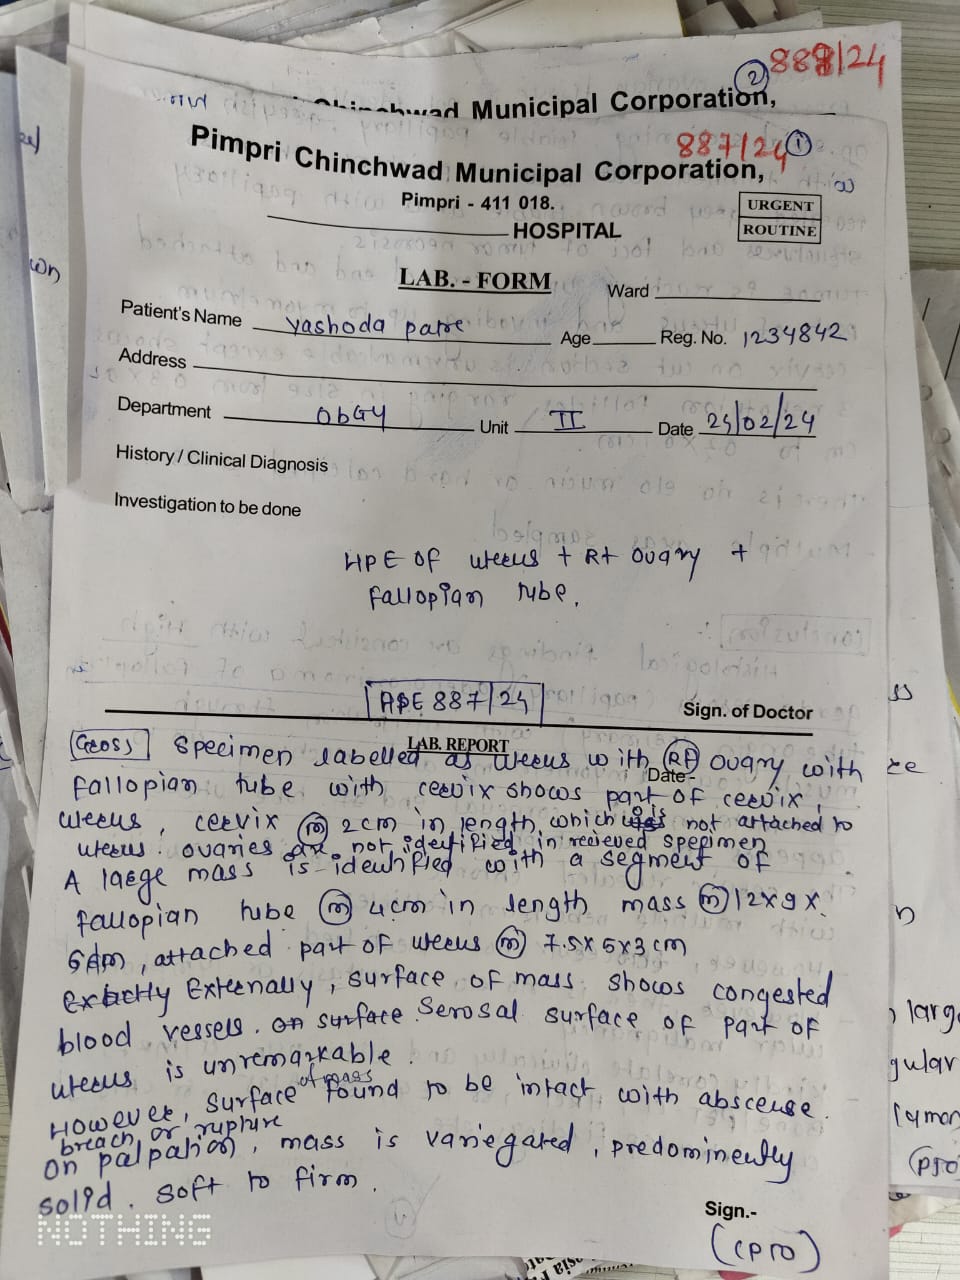 888/24
2
Chinchwad Municipal Corporation,
887/24 1
Pimpri Chinchwad Municipal Corporation,
Pimpri - 411 018.
URGENT
ROUTINE
HOSPITAL
LAB. - FORM
Ward
Patient's Name Yashoda patre
Age Reg. No. 1234842
Address
Department ObGY Unit II Date 25/02/24
History / Clinical Diagnosis
Investigation to be done
HPE OF uterus + Rt ovary +
fallopian tube.
ASE 887/24
Sign. of Doctor
LAB. REPORT
Date-
Gross Specimen labelled as uterus with Rt ovary with
fallopian tube with cervix shows part of cervix,
uterus, cervix m 2cm in length, which is not attached to
uterus. ovaries are not identified in recieved specimen
A large mass is identified with a segment of
fallopian tube m 4cm in length mass m 12x9x
6cm, attached part of uterus m 7.5x5x3cm
Externally, surface of mass shows congested
blood vessels. on surface. Serosal surface of part of
uterus is unremarkable.
However, surface of mass found to be intact with abscense
breach or rupture
On palpation, mass is variegated, predominently
solid. soft to firm.
Sign.-
(CPTO)
ss
n
large
gular
(PTO)
NOTHING